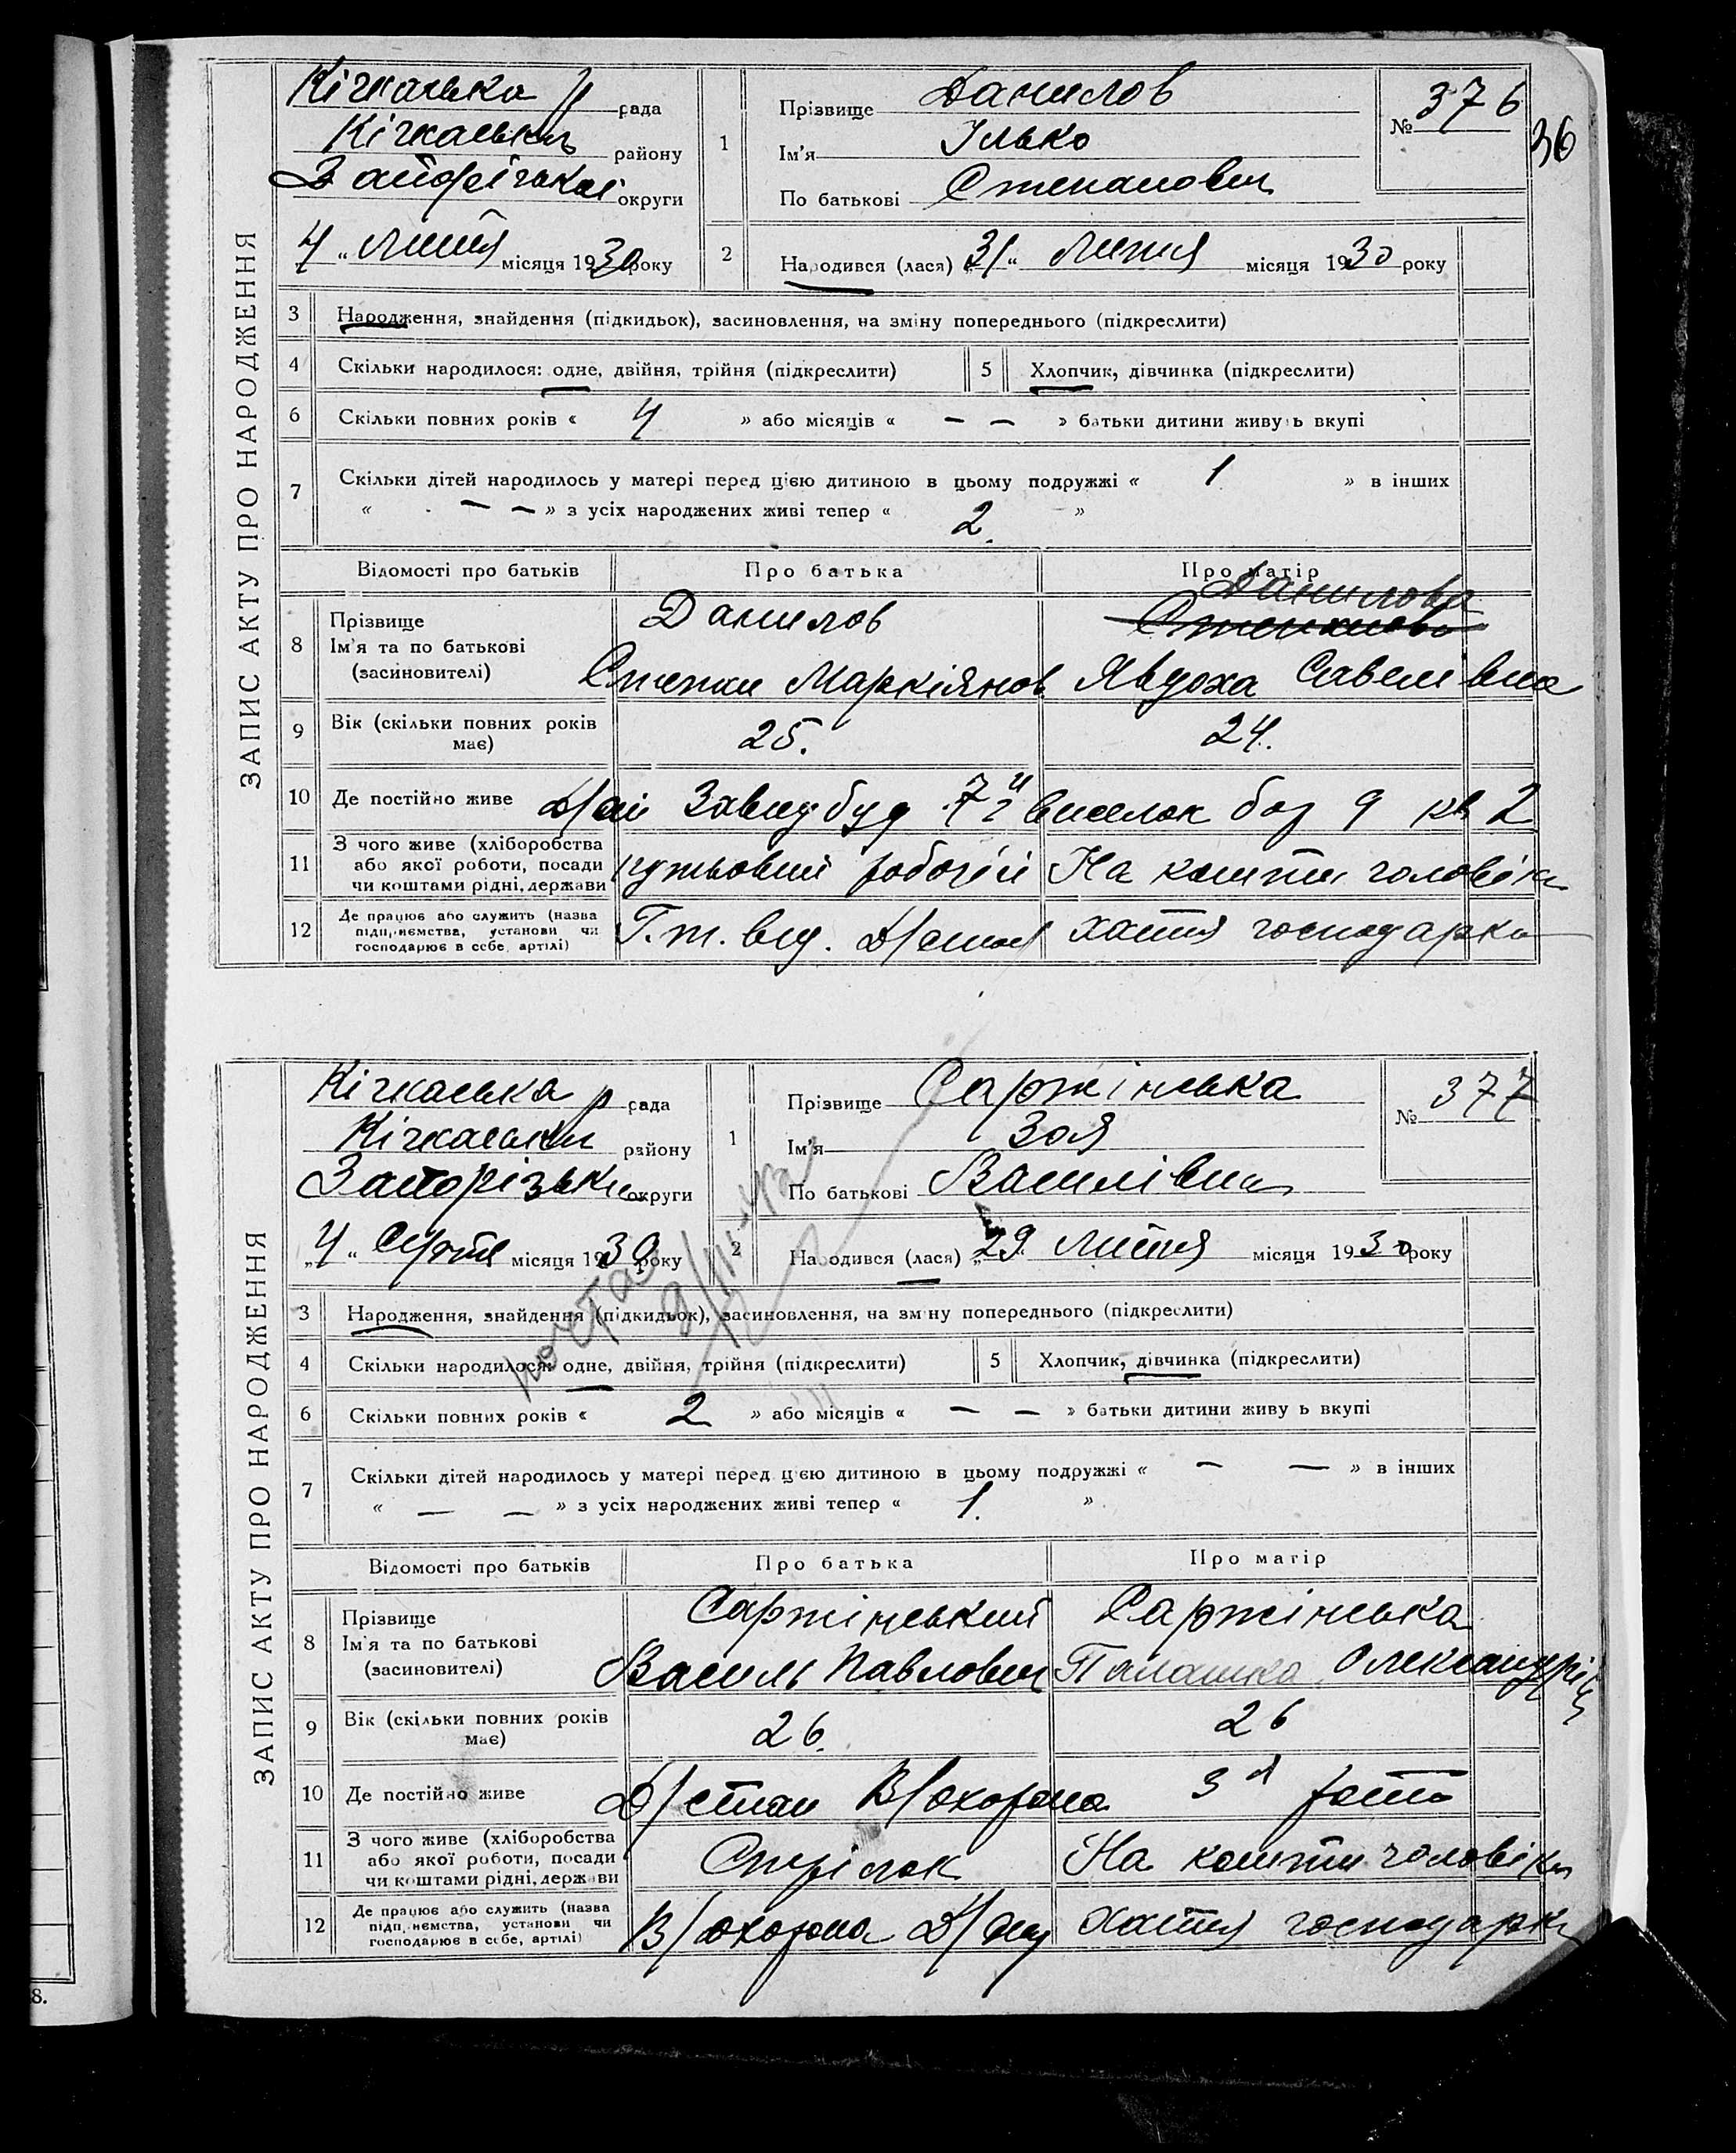 ЗАПИС АКТУ ПРО НАРОДЖЕННЯ
Кічкаська р рада
Кічкаськ району
Запорізької округи
4 „ Липня місяця 1930 року
1 Прізвище Данилов
Ім'я Ілько
По батькові Степанович
№ 376
36
2 Народився (лася) „31„ Липня місяця 1930 року
3 Народження, знайдення (підкидьок), засиновлення, на зміну попереднього (підкреслити)
4 Скільки народилося: одне, двійня, трійня (підкреслити) 5 Хлопчик, дівчинка (підкреслити)
6 Скільки повних років « 4 » або місяців « — — » батьки дитини живуть вкупі
7 Скільки дітей народилось у матері перед цією дитиною в цьому подружжі « 1 » в інших
« — — » з усіх народжених живі тепер « 2. »
Відомості про батьків Про батька Про матір
8 Прізвище Данилов Данилова
Ім'я та по батькові
(засновителі) Степан Маркіянов. Явдоха Савелівна
9 Вік (скільки повних років має) 25. 24.
10 Де постійно живе 7й виселок 9 кв 2
11 З чого живе (хліборобства
або якої роботи, посади
чи коштами рідні, держави робочій На кошти чоловіка
12 Де працює або служить (назва
підприємства, установи чи
господарює в себе, артілі) Г.т. від. хатня господарка
ЗАПИС АКТУ ПРО НАРОДЖЕННЯ
Кічкаська р рада
Кічкаськ району
Запорізьк округи
„4„ Серпня місяця 1930 року
1 Прізвище Саржінська
Ім'я Зоя
По батькові Василівна
№ 377
2 Народився (лася) „29„ Липня місяця 1930 року
3 Народження, знайдення (підкидьок), засиновлення, на зміну попереднього (підкреслити)
4 Скільки народилося: одне, двійня, трійня (підкреслити) 5 Хлопчик, дівчинка (підкреслити)
6 Скільки повних років « 2 » або місяців « — — » батьки дитини живу ь вкупі
7 Скільки дітей народилось у матері перед цією дитиною в цьому подружжі « — — » в інших
« — — » з усіх народжених живі тепер « 1. »
Відомості про батьків Про батька Про матір
8 Прізвище Саржінський Саржінська
Ім'я та по батькові
(засиновителі) Василь Павлович Палашка Олександрів
9 Вік (скільки повних років має) 26. 26
10 Де постійно живе В/охорона 3я рота
11 З чого живе (хліборобства
або якої роботи, посади
чи коштами рідні, держави Стрілок На кошти чоловіка
12 Де працює або служить (назва
підприємства, установи чи
господарює в себе, артілі) В/охорона хатня господарка
8.